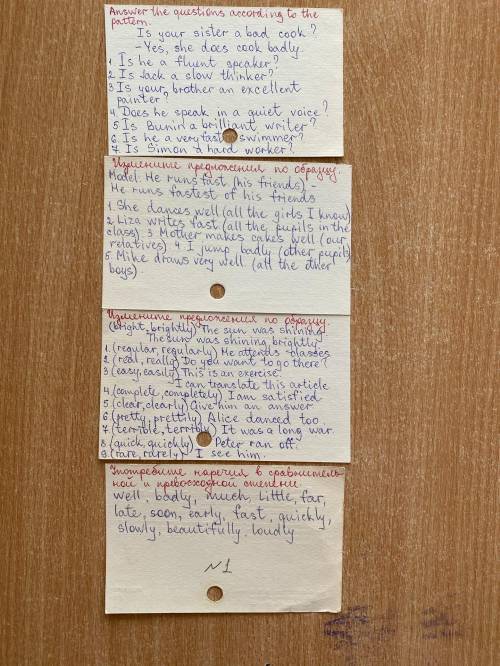 Answer the questions according to the
pattern.
Is your sister a bad cook?
- Yes, she does cook badly.
1. Is he a fluent speaker?
2. Is Jack a slow thinker?
3 Is your brother an excellent
painter?
4. Does he speak in a quiet voice?
5. Is Bunin a brilliant writer?
6. Is he a very fast swimmer?
7. Is Simon a hard worker?
Измените предложения по образцу.
Model: He runs fast (his friends) -
He runs fastest of his friends
1. She dances well (all the girls I know)
2. Liza writes fast (all the pupils in the
class) 3 Mother makes cakes well (our
relatives) 4 I jump badly (other pupils)
5. Mike draws very well (all the other
boys)
Измените предложения по образцу
(bright, brightly) The sun was shining
The sun was shining brightly
1. (regular, regularly) He attends classes
2. (real, really) Do you want to go there?
3 (easy, easily) This is an exercise.
I can translate this article
4 (complete, completely) I am satisfied
5. (clear, clearly) Give him an answer
6. (pretty, prettily) Alice danced too
7. (terrible, terribly) It was a long war.
8 (quick, quickly) Peter ran off.
9 (rare, rarely) I see him.
Употребите наречия в сравнитель-
ной и превосходной степени.
well, badly, much, little, far,
late, soon, early, fast, quickly,
slowly, beautifully, loudly
N1